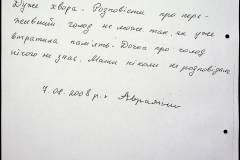 Дуже хвора. Розповісти про пере-
живший голод не може, так як уже
втратила пам'ять. Дочка про голод
нічого не знає. Мати ніколи не розповідала.
7.08.2008 р.